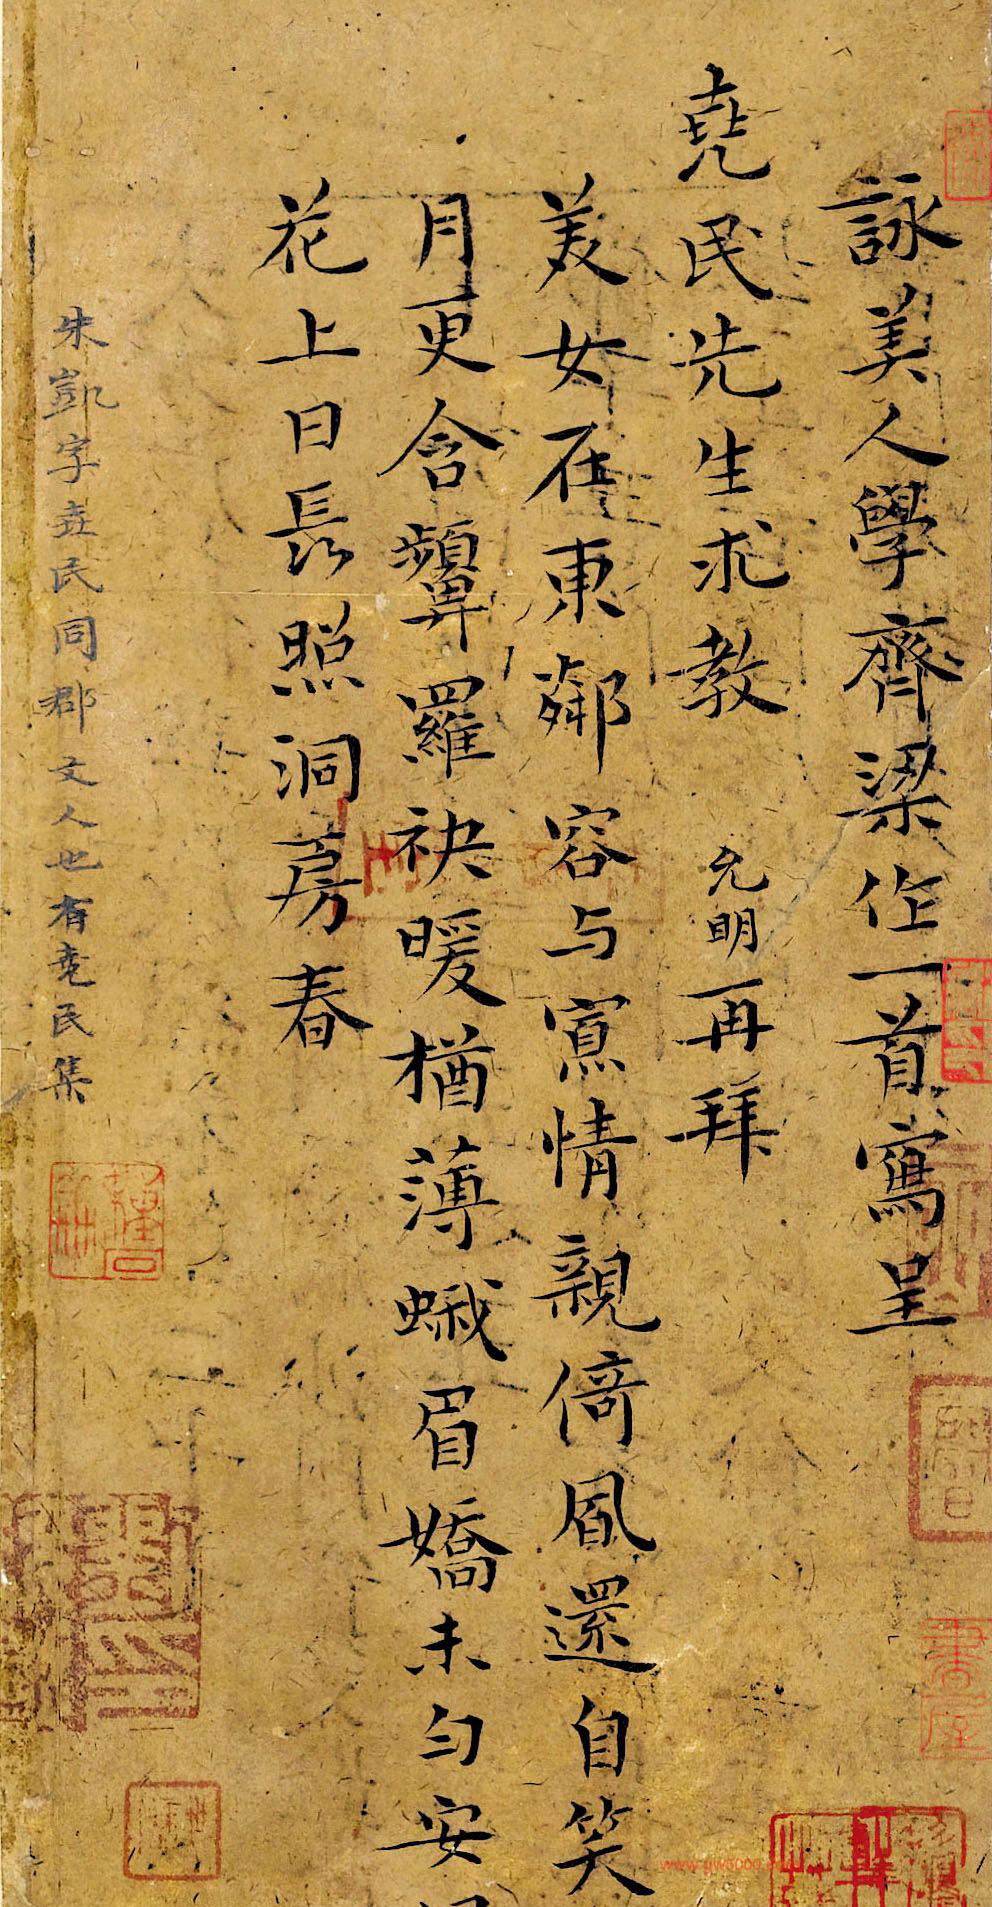 詠美人學齊梁作一首寫呈
堯民先生求教 允明再拜
美女在東鄰容与情親倚風還自笑
月更含顰羅袂暖猶薄蛾眉嬌未匀安
花上日長照洞房春
朱凱字堯民同郡文人也有堯民集